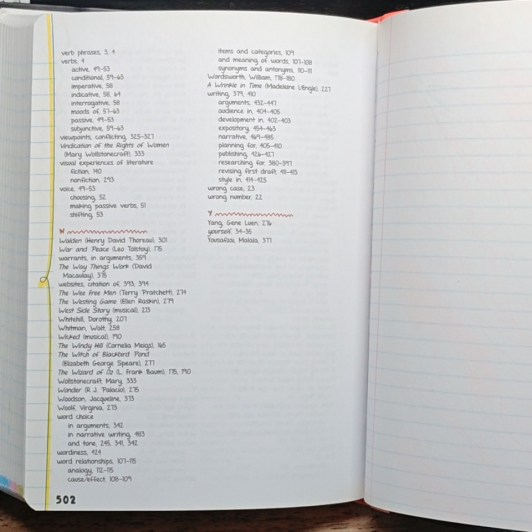 verb phrases, 3, 4
verbs, 4
active, 49-53
conditional, 59-63
imperative, 58
indicative, 58, 64
interrogative, 58
moods of, 57-63
passive, 49-53
subjunctive, 59-63
viewpoints, conflicting, 325-327
Vindication of the Rights of Women
(Mary Wollstonecraft) 333
visual experiences of literature
fiction, 140
nonfiction, 293
voice, 49-53
choosing, 52
making passive verbs, 51
shifting, 53
W
Walden (Henry David Thoreau), 301
War and Peace (Leo Tolstoy), 175
warrants, in arguments, 359
The Way Things Work (David
Macaulay), 315
websites, citation of, 393, 394
The Wee Free Men (Terry Pratchett), 274
The Westing Game (Ellen Raskin), 279
West Side Story (musical), 213
Whitehill, Dorothy, 207
Whitman, Walt, 258
Wicked (musical), 190
The Windy Hill (Cornelia Meigs), 165
The Witch of Blackbird Pond
(Elizabeth George Speare), 277
The Wizard of Oz (L. Frank Baum), 175, 190
Wollstonecraft, Mary, 333
Wonder (R. J. Palacio), 275
Woodson, Jacqueline, 373
Woolf, Virginia, 273
word choice
in arguments, 342
in narrative writing, 483
and tone, 245, 341, 342
wordiness, 424
word relationships, 107-115
analogy, 112-115
cause/effect, 108-109
502
items and categories, 109
and meaning of words, 107-108
synonyms and antonyms, 110-111
Wordsworth, William, 178-180
A Wrinkle in Time (Madeleine L'Engle), 227
writing, 379, 410
arguments, 432-447
audience in, 404-405
development in, 402-403
expository, 454-463
narrative, 469-485
planning for, 405-410
publishing, 426-427
researching for, 380-397
revising first draft, 411-413
style in, 414-425
wrong case, 23
wrong number, 22
Y
Yang, Gene Luen, 276
yourself, 34-35
Yousafzai, Malala, 377